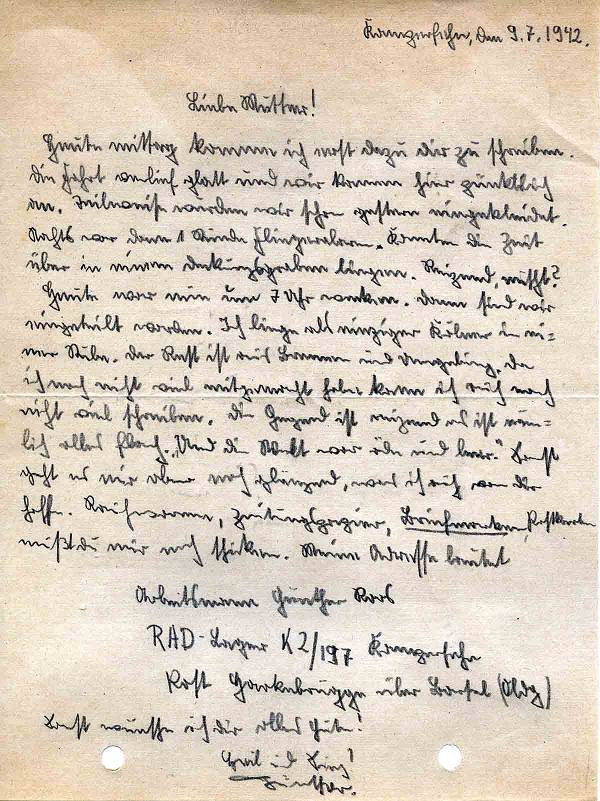 Kamperfehn, den 9.7.1942.
Liebe Mutter!
Heute mittag komme ich erst dazu dir zu schreiben.
Die Fahrt verlief glatt und wir kamen hier pünktlich
an. Teilweise wurden wir schon gestern eingekleidet.
Nachts war dann 1 Stunde Fliegeralarm. Konnten die Zeit
über in einem Deckungsgraben liegen. Reizend, nicht?
Heute war nun um 7 Uhr wecken. Dann sind wir
eingeteilt worden. Ich liege als einziger Kölner in ei=
ner Stube. Der Rest ist aus Bremen und Umgebung. Da
ich noch nicht viel mitgemacht habe kann ich auch noch
nicht viel schreiben. Die Gegend ist reizend es ist näm=
lich alles flach. „Und die Welt war öde und leer." Sonst
geht es mir aber noch glänzend, was ich auch von dir
hoffe. Zeitungspapier, Briefmarken, Postkarten
mußt du mir noch schicken. Meine Adresse lautet
Arbeitsmann Günther Roos
RAD-Lager K2/197 Kamperfehn
Post Garkebrügge über Barsel (Oldg)
Sonst wünsche ich dir alles Gute!
Heil und Sieg!
Günther.